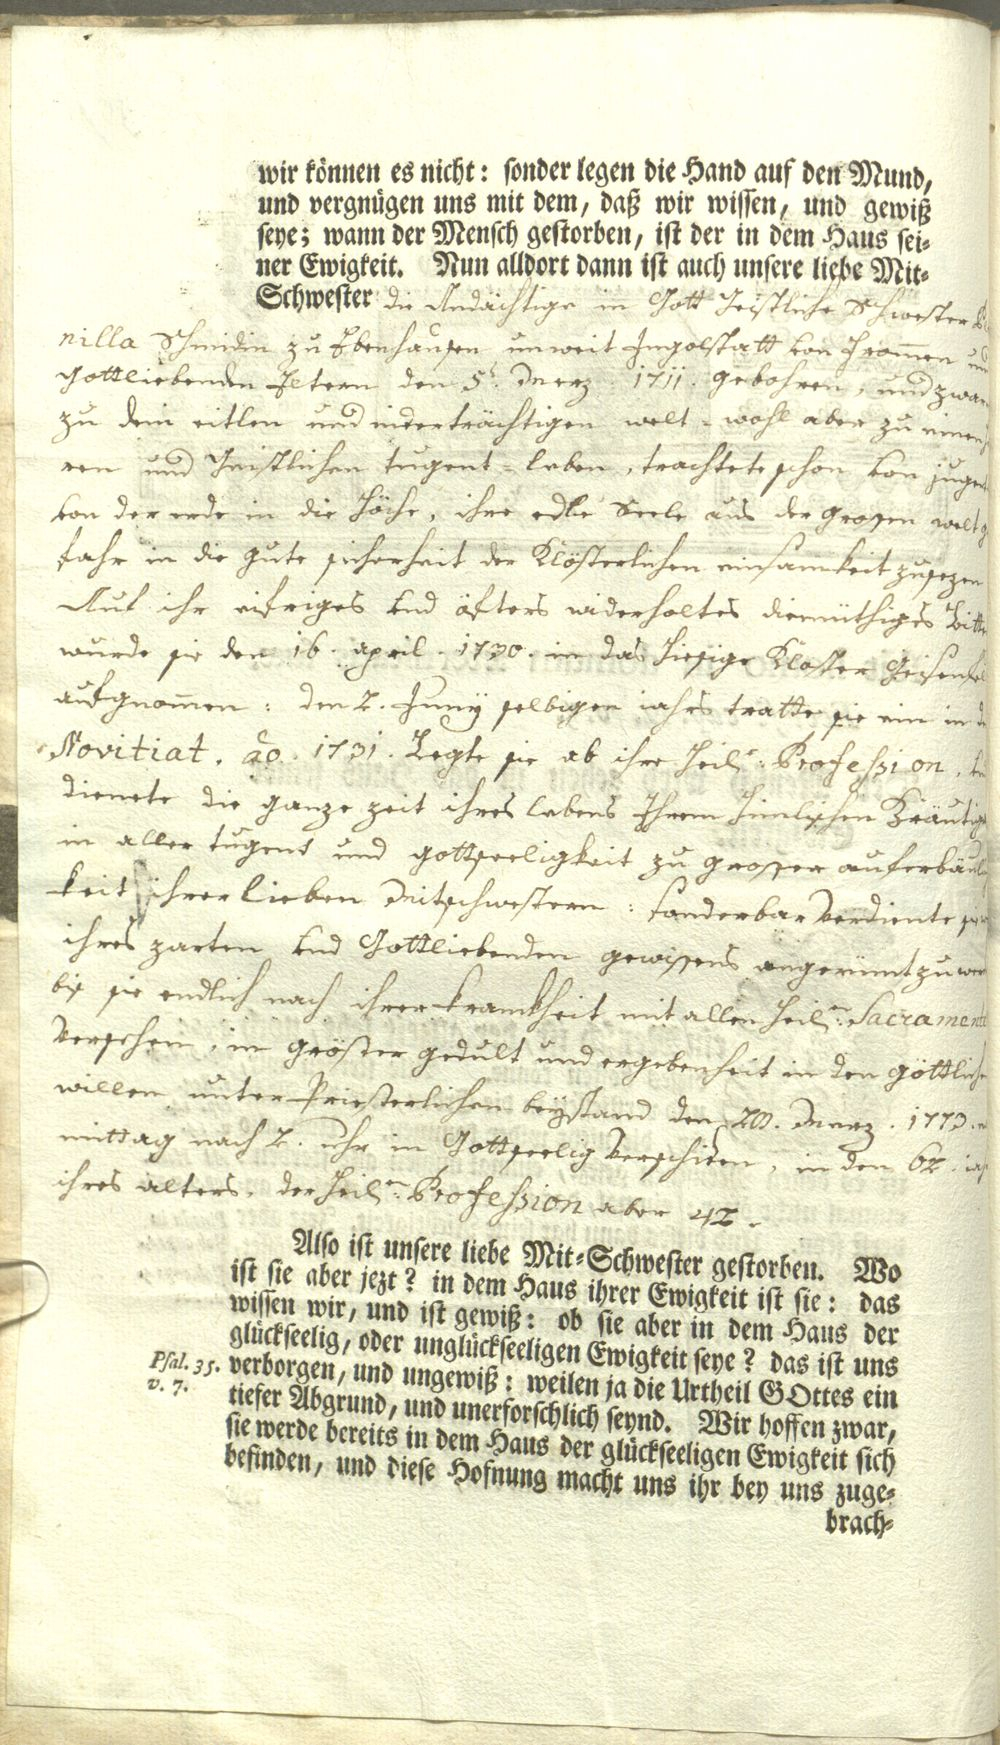 wir können es nicht: sonder legen die Hand auf den Mund,
und vergnügen uns mit dem, daß wir wissen, und gewiß
seye; wann der Mensch gestorben, ist der in dem Haus sei-
ner Ewigkeit. Nun alldort dann ist auch unsere liebe Mit-
Schwester die Andächtige in Gott Geistliche Schwester
nilla Schmidin zu Ebenhausen unweit Ingolstatt von frommen und
Gottliebenden Eltern den 5t. Merz 1711. gebohren, und zwar
zu dem eitlen und niderträchtigen welt - wohl aber zu einen
ren und Geistlichen tugent-leben, trachtete schon von jugent
von der erde in die Höche, ihre edle Seele aus der grosen welt g
fahr in die gute sicherheit der Klösterlichen einsamkeit zusezen
Auf ihr eifriges und öfters widerholtes diemüthiges Bitten
wurde sie den 16. april. 1730. in das hiesige Kloster Geisenfeld
aufgnom̄en: den 2. Juny selbigen iahrs tratte sie ein in d
Novitiat. ao. 1731. Legte sie ab ihre Heil: Profession,
dienete die ganze zeit ihres lebens Ihrem himlischen Bräutig
in aller tugend und gottseeligkeit zu grosser auferbäul
keit ihrer lieben Mitschwestern: sonderbar verdiente sie
ihres zarten und Gottliebenden gewissens angerümt zu wer
bis sie endlich nach ihrer kranckheit mit allen Heil: Sacramente
versehen, in gröster gedult und ergebenheit in den göttliche
willen unter Priesterlichen beystand den 20. Merz. 1773.
mittag nach 2. uhr in Gott seelig verschiden, in den 62. iah
ihres alters. der Heil: Profession aber 42.
Also ist unsere liebe Mit-Schwester gestorben. Wo
ist sie aber jezt? in dem Haus ihrer Ewigkeit ist sie: das
wissen wir, und ist gewiß: ob sie aber in dem Haus der
glückseelig, oder unglückseeligen Ewigkeit seye? das ist uns
Psal. 35. v. 7.
verborgen, und ungewiß: weilen ja die Urtheil GOttes ein
tiefer Abgrund, und unerforschlich seynd. Wir hoffen zwar,
sie werde bereits in dem Haus der glückseeligen Ewigkeit sich
befinden, und diese Hofnung macht uns ihr bey uns zuge-
brach-